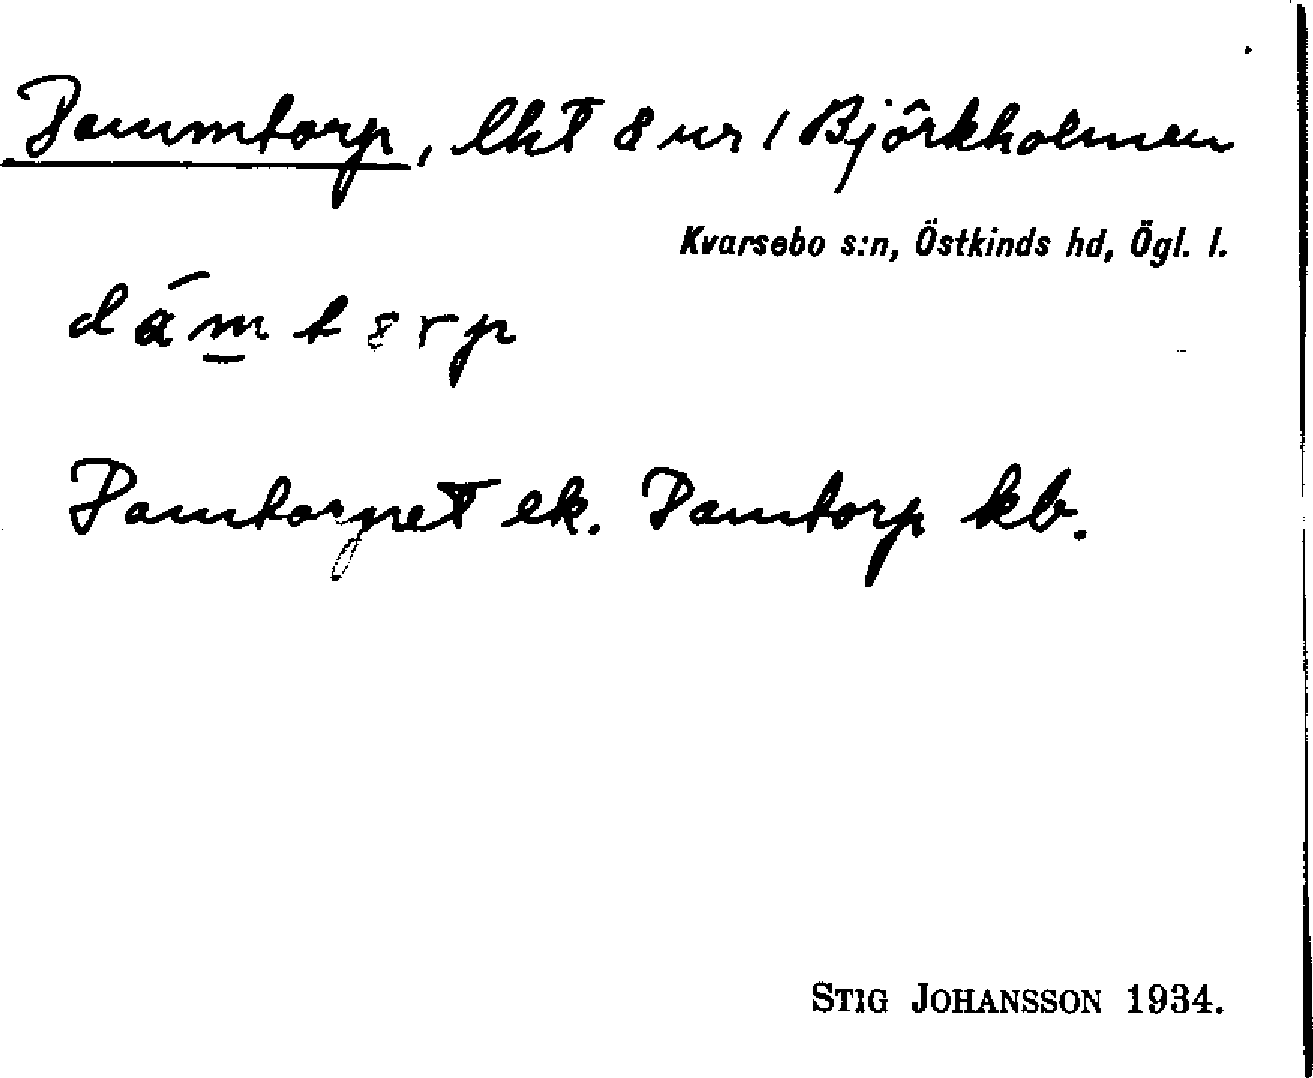 Dammtorp, lht 8 ur 1 Björkholmen
Kvarsebo s:n, Östkinds hd, Ögl. l.
dám̲tɵrp
Damtorpet ek. Damtorp kb.
STIG JOHANSSON 1934.